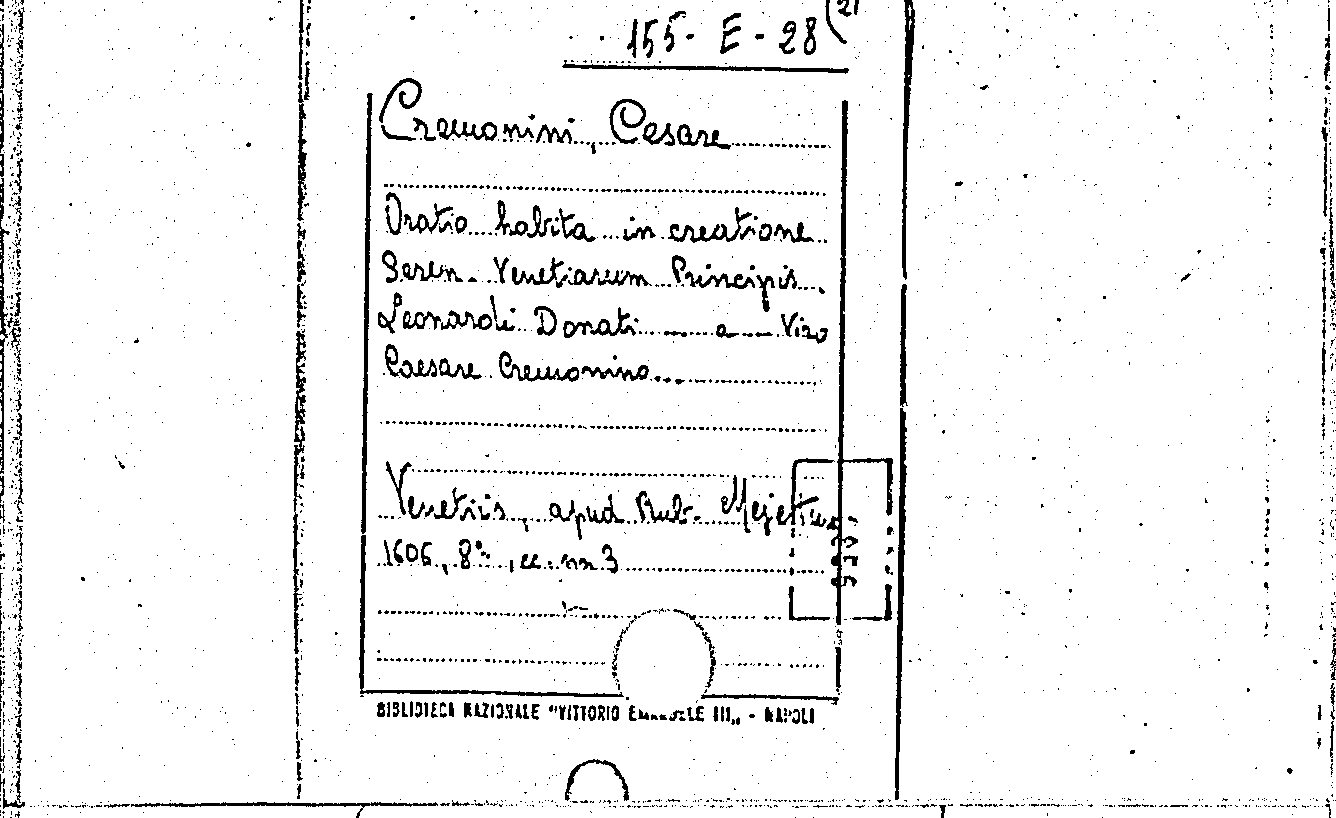 155-E-28 (21
Cremonini, Cesare
Oratio habita in creatione
Seren. Venetiarum Principis.
Leonardi Donati ... a ... Viro
Caesare Cremonino...
Venetiis, apud Rub. Mejettum
1606, 8º, cc. nn 3
BIBLIOTECA NAZIONALE "VITTORIO EMANUELE III„ - NAPOLI